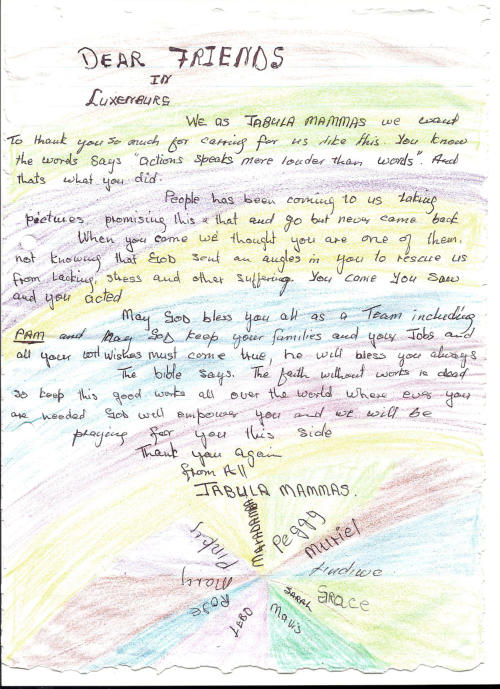 DEAR FRIENDS
IN
LUXENBURG
We as TABULA MAMMAS we want
To thank you so much for carring for us like this. You know
the words says "actions speaks more louder than words". And
thats what you did.
People has been coming to us taking
pictures, promising this & that and go but never came back
When you come we thought you are one of them.
not knowing that GOD sent an angles in you to rescue us
from lacking, stress and other suffering. You came You saw
and you acted
May GOD bless you all as a Team including
PAM and May GOD keep your families and your Jobs and
all your wishes must come true, he will bless you always
The bible says. The faith without works is dead
so keep this good works all over the world where ever you
are needed GOD will empower you and we will be
praying for you this side
Thank you again
from All
TABULA MAMMAS.
Pinky
Peggy
Muriel
Mary
Rose
SARAH
GRACE
LEBO
Mavis